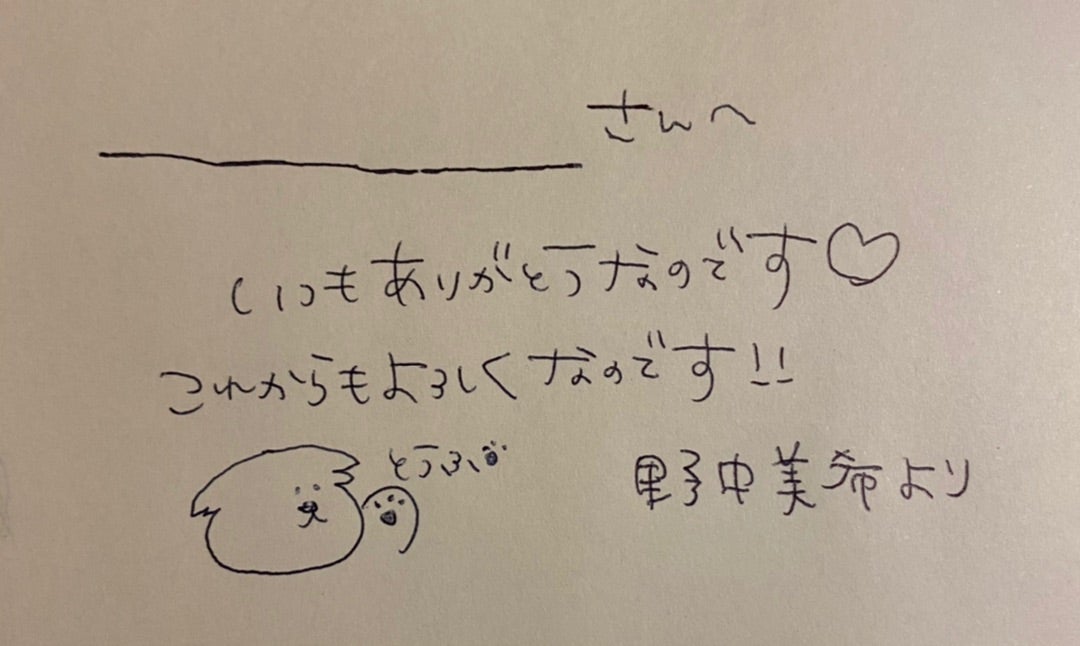 さんへ
いつもありがとうなのです♡
これからもよろしくなのです!!
とうふ
野中美希より